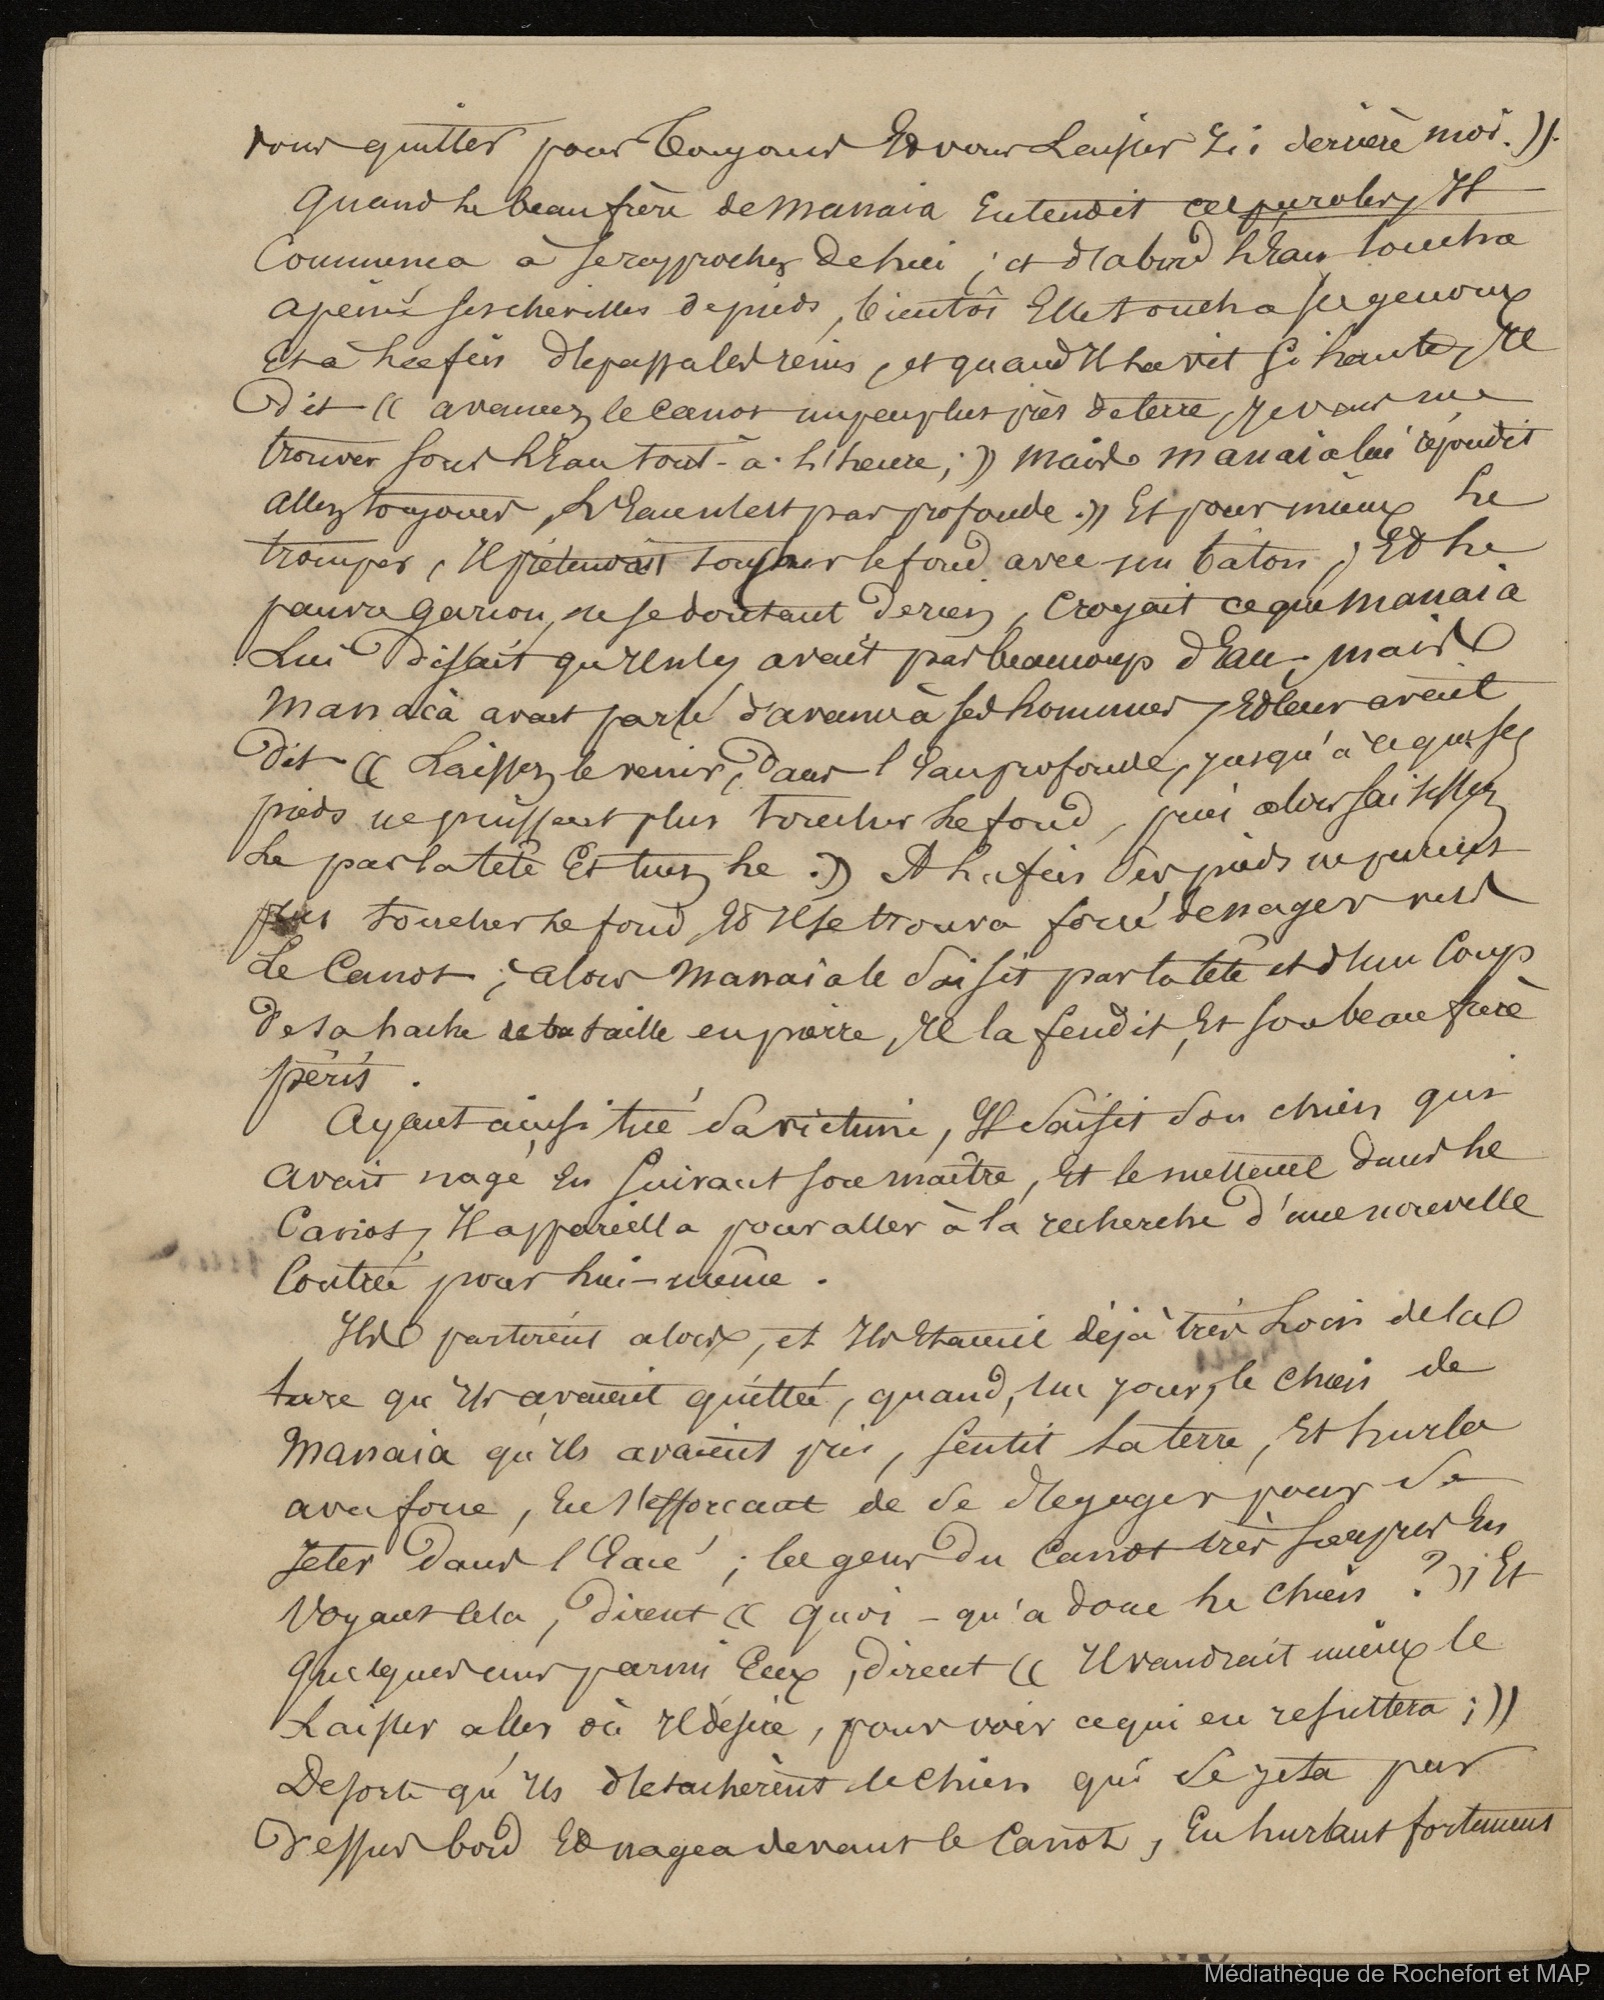 vous quitter pour toujours Et vous Laisser Ici derière moi. »
Quand le beau frère de Manaia Entendit ces paroles, Il
Commença à se rapprocher de lui ; et d'abord l'Eau toucha
a peine ses chevilles de pieds, bientôt Elle toucha ses genoux
Et à la fin dépassa les reins, et quand Il la vit si haute, Il
Dit « avancez le canot un peu plus près de terre, Je vais me
trouver sous l'Eau tout-à-l'heure ; » Mais Manaia lui répondit
allez toujours, L'Eau n'est pas profonde. » Et pour mieux le
tromper, Il prétendait toucher le fond avec un bâton ; Et le
pauvre garcon, ne se doutant de rien, Croyait ce que Manaia
Lui Disait qu'Il n'y avait pas beaucoup d'Eau ; mais
Manaia avait parlé d'avance à ses hommes, Et leur avait
Dit « Laissez le venir, Dans l'Eau profonde, jusqu'à ce que ses
pieds ne puissent plus toucher le fond, puis alors saisissez
Le par la tête Et tuez le. » A la fin Ses pieds ne purent
plus toucher le fond, Et Il se trouva forcé de nager vers
Le Canot ; alors Manaia le Saisit par la tête et d'un Coup
De sa hache de bataille en pierre, Il la fendit, Et son beau frère
périt.
Ayant ainsi tué Sa victime, Il Saisit Son chien qui
avait nagé En Suivant son maître, Et le mettant dans le
Canot, Il appareilla pour aller à la recherche d'une nouvelle
Contrée pour lui-même.
Ils partirent alors, et Ils Etaient déjà très Loin de la
terre qu'Ils avaient quittée, quand, Un jour, le Chien de
Manaia qu'Ils avaient pris, Sentit La terre, Et hurla
avec force, En s'efforcant de Se dégager pour Se
Jeter Dans l'Eau ; les gens Du Canot très Surpris En
Voyant cela, Dirent « Quoi - qu'a donc le Chien ? » ; Et
Quelques uns parmi Eux, dirent « Il vaudrait mieux le
Laisser aller où Il désire, pour voir ce qui en resultera ; »
De sorte qu'Ils détachèrent le Chien qui Se jeta par
Dessus bord Et nagea devant le Canot, En hurlant fortement
Médiathèque de Rochefort et MAP